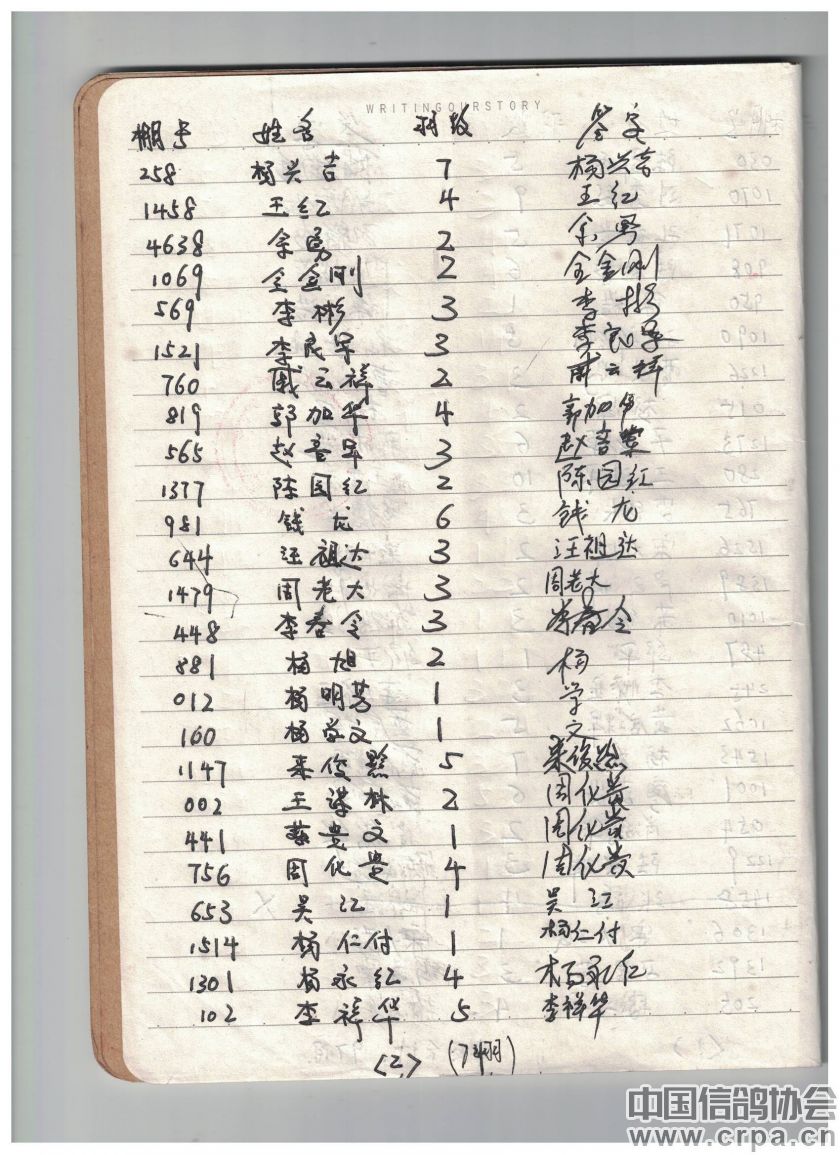 WRITINGOURSTORY
棚号 姓名 羽数 签字
258 杨兴吉 7 杨兴吉
1458 王红 4 王红
4638 余勇 2 余勇
1069 全金刚 2 全金刚
569 李彬 3 李彬
1521 李良军 3 李良军
760 戚云祥 2 戚云祥
819 郭加华 4 郭加华
565 赵 3 赵
1377 陈园红 2 陈园红
981 钱龙 6 钱龙
644 汪祖达 3 汪祖达
1479 周老大 3 周老大
448 李春令 3 李春令
881 杨旭 2 杨
012 杨明芳 1 学
160 杨学文 1 文
1147 俊 5 俊
002 王 林 2 周化贵
441 贵文 1 周化贵
756 周化贵 4 周化贵
653 吴江 1 吴江
1514 杨仁付 1 杨仁付
1301 杨永红 4 杨永红
102 李祥华 5 李祥华
<2> (74羽)
中国信鸽协会
www.crpa.cn